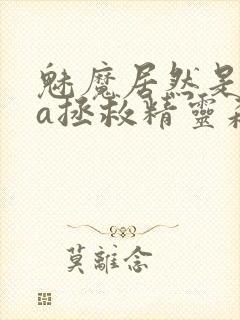 魅魔居然是
a拯救精靈
莫離念